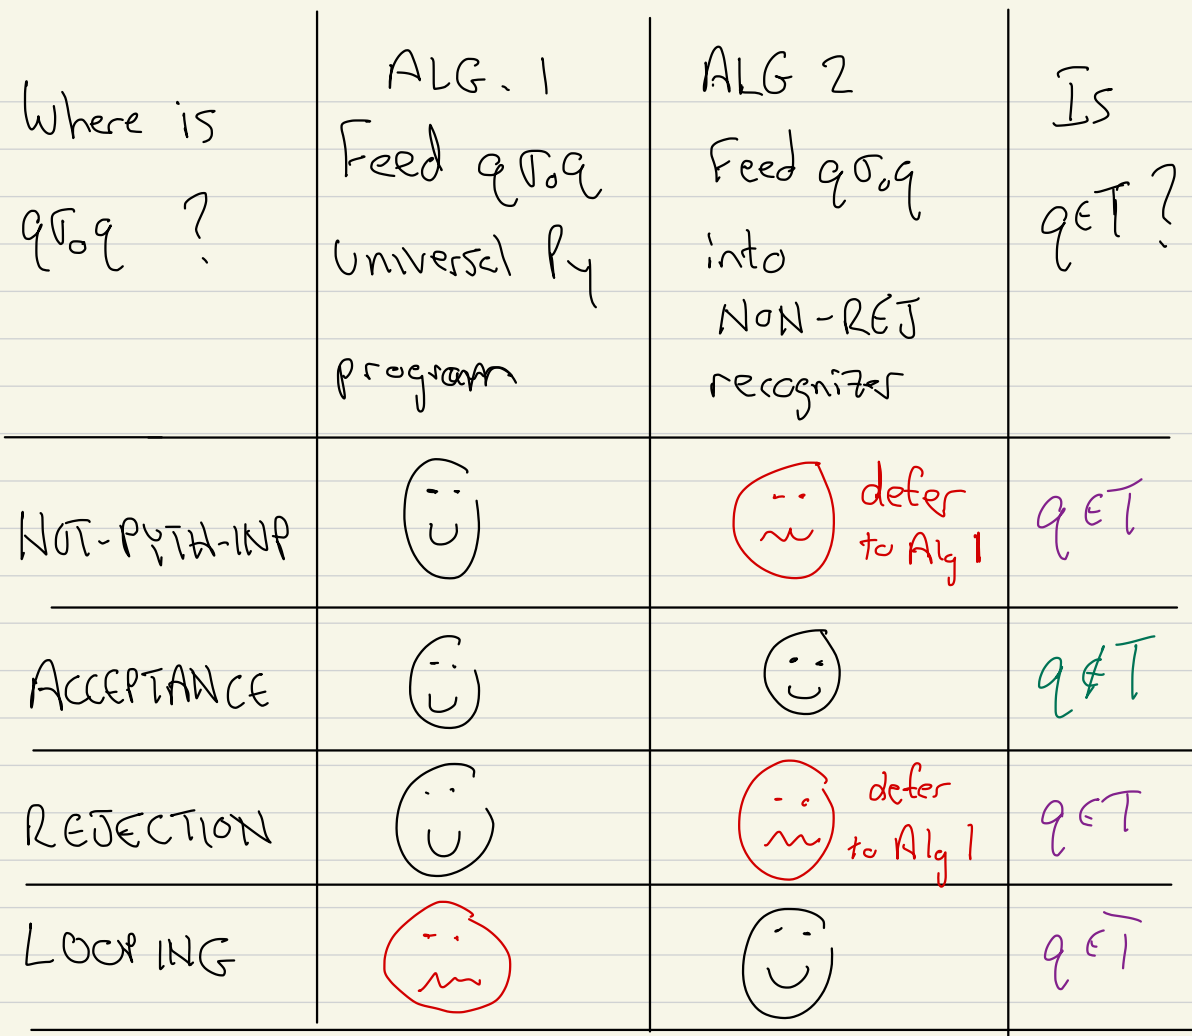 Where is
qσ₀q ?
ALG. 1
Feed qσ₀q
universal Py
program
ALG 2
Feed qσ₀q
into
NON-REJ
recognizer
Is
q∈T ?
NOT-PYTH-INP
defer
to Alg 1
q∈T
ACCEPTANCE
q∉T
REJECTION
defer
to Alg 1
q∈T
LOOPING
q∈T